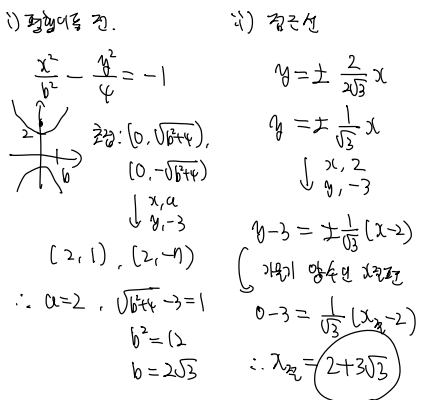 i) 평행이동 전.
x²/b² - y²/4 = -1
2
b
초점: (0, √(b²+4)),
(0, -√(b²+4))
↓ x, a
y, -3
(2, 1), (2, -7)
∴ a=2, √(b²+4) -3=1
b²=12
b=2√3
ii) 점근선
y=± 2/(2√3) x
y=± 1/√3 x
↓ x, 2
y, -3
y-3 = ± 1/√3 (x-2)
기울기 양수인 x절편
0-3 = 1/√3 (x절-2)
∴ x절= 2+3√3